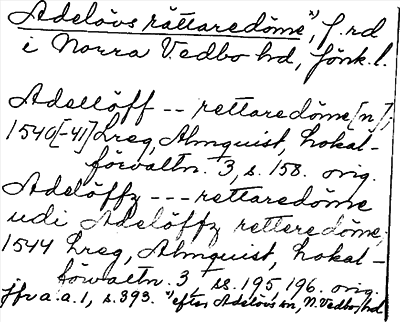 Adelövs rättaredöme¹⁾, f. rd
i Norra Vedbo hd, Jönk. l.
Adellöff -- rettaredöme[n];
1540[-41] Lreg, Almquist, Lokal-
förvaltn. 3, s. 158. orig.
Adelöffz --- rettaredöme
udi Adelöffz retteredöme;
1544 Lreg, Almquist, Lokal-
förvaltn. 3, ss. 195, 196. orig.
Jfr a.a. 1, s. 393. ¹⁾ efter Adelövs sn, N. Vedbo hd